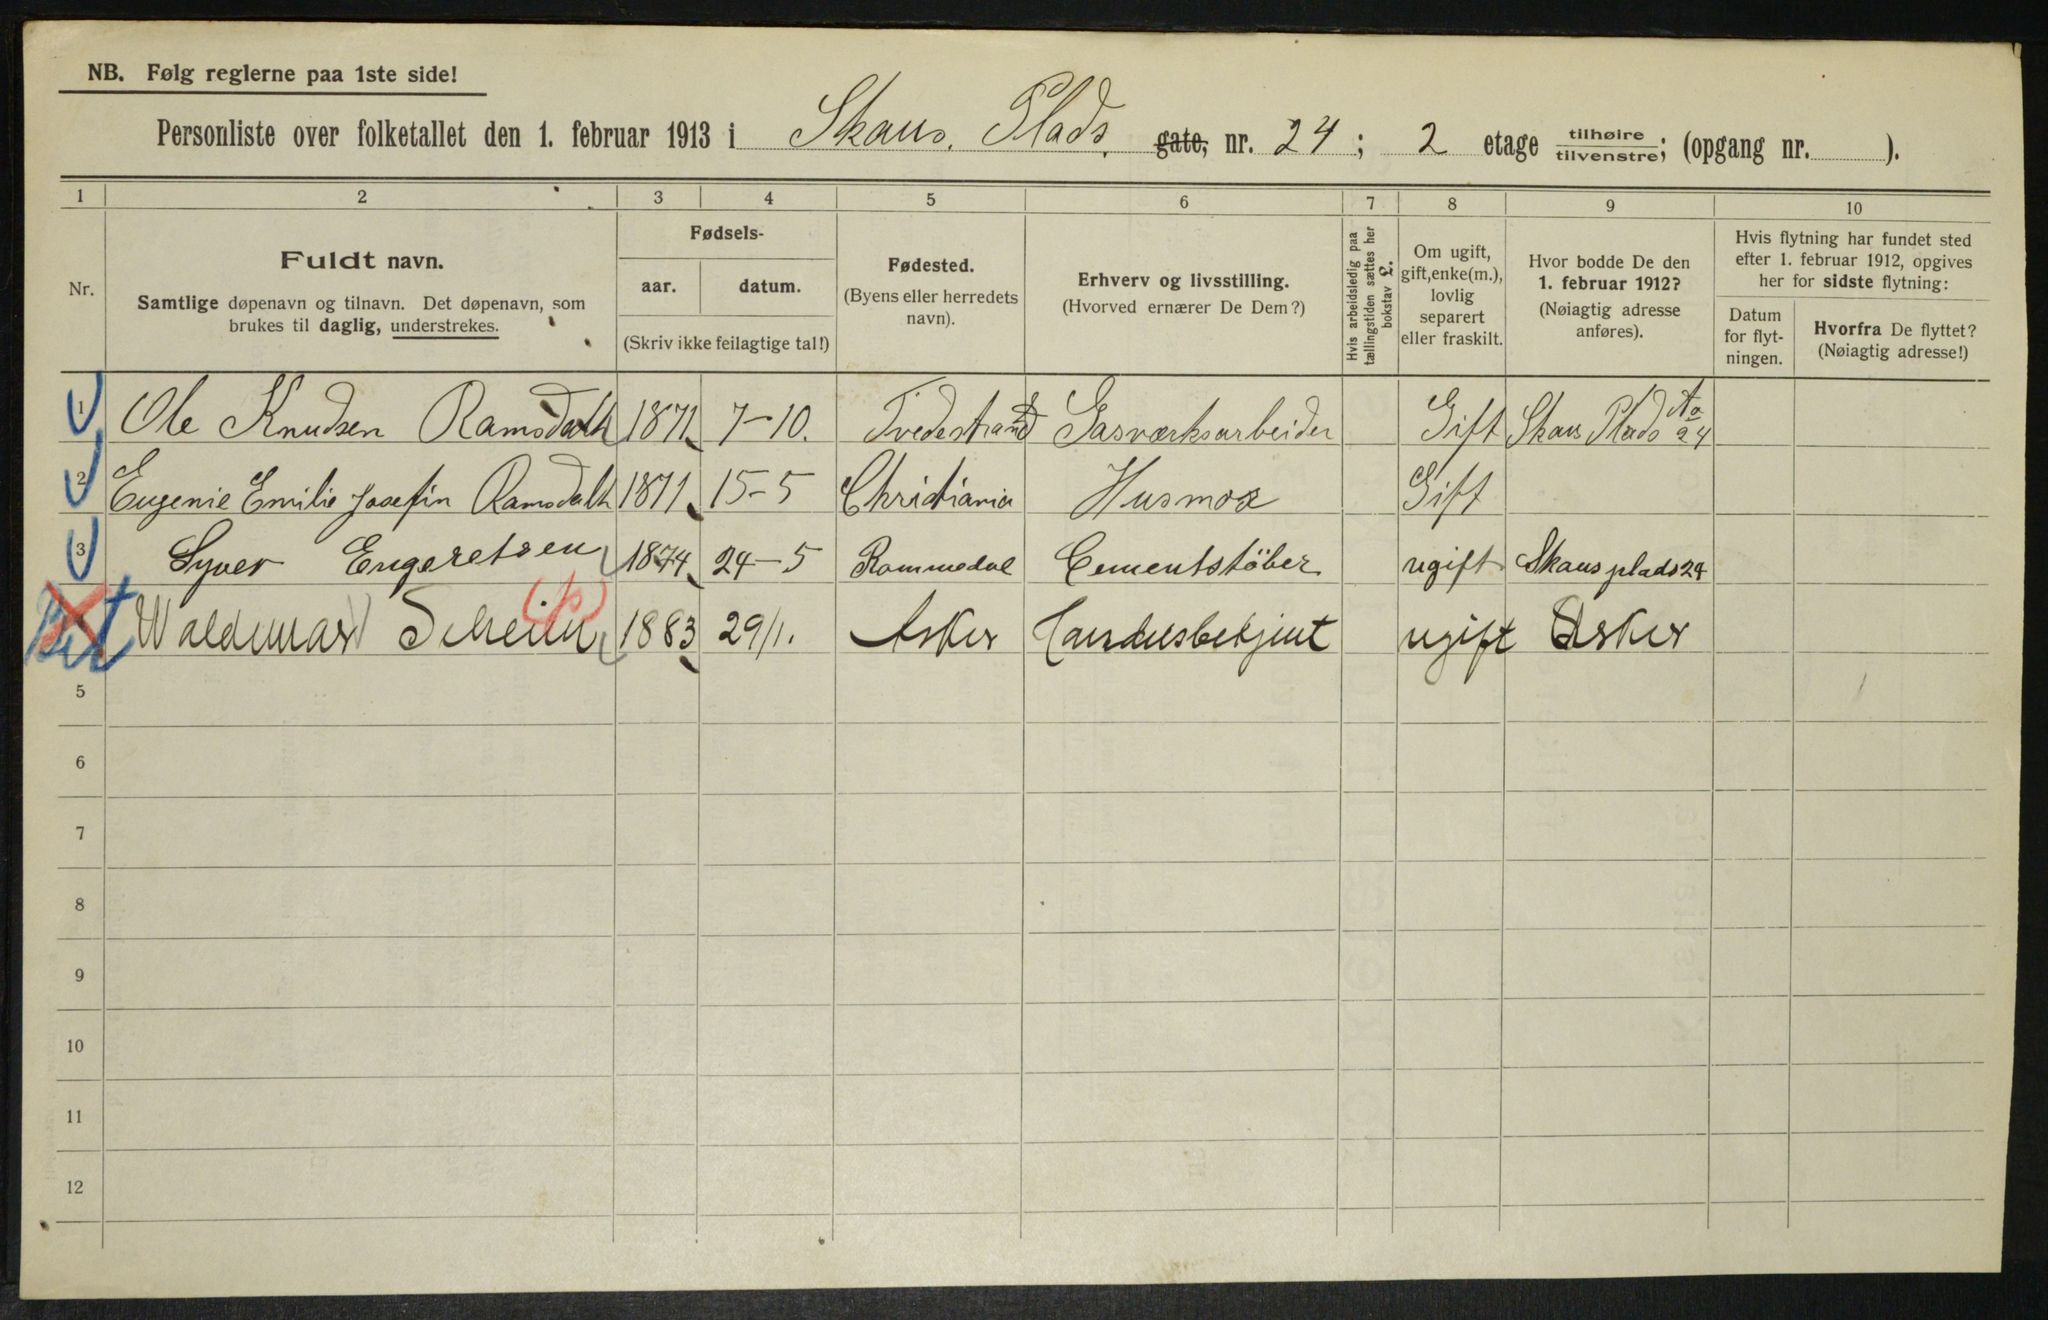 NB. Følg reglerne paa 1ste side!
Personliste over folketallet den 1. februar 1913 i Skaus. Plads. gate, nr. 24; 2 etage tilhøire tilvenstre; (opgang nr. ).
1 2 3 4 5 6 7 8 9 10
Nr.
Fuldt navn.
Samtlige døpenavn og tilnavn. Det døpenavn, som
brukes til daglig, understrekes.
Fødsels-
aar. datum.
(Skriv ikke feilagtige tal!)
Fødested.
(Byens eller herredets
navn).
Erhverv og livsstilling.
(Hvorved ernærer De Dem?)
Hvis arbeidsledig paa
tællingstiden sættes her
bokstav L.
Om ugift,
gift, enke(m.),
lovlig
separert
eller fraskilt.
Hvor bodde De den
1. februar 1912?
(Nøiagtig adresse
anføres).
Hvis flytning har fundet sted
efter 1. februar 1912, opgives
her for sidste flytning:
Datum
for flyt-
ningen.
Hvorfra De flyttet?
(Nøiagtig adresse!)
1 Ole Knudsen Ramsdalh 1871 7-10. Tvedestrand Gasværksarbeider Gift Skaus Plads No 24
2 Eugenie Emilie Josefin Ramsdalh 1871 15-5 Christiania Husmor Gift
3 Syver Engeretsen 1874 24-5 Rommedal Cementstöber ugift Skaus plads 24
Waldemar 1883 29/1. Asker ugift Asker
5
6
7
8
9
10
11
12